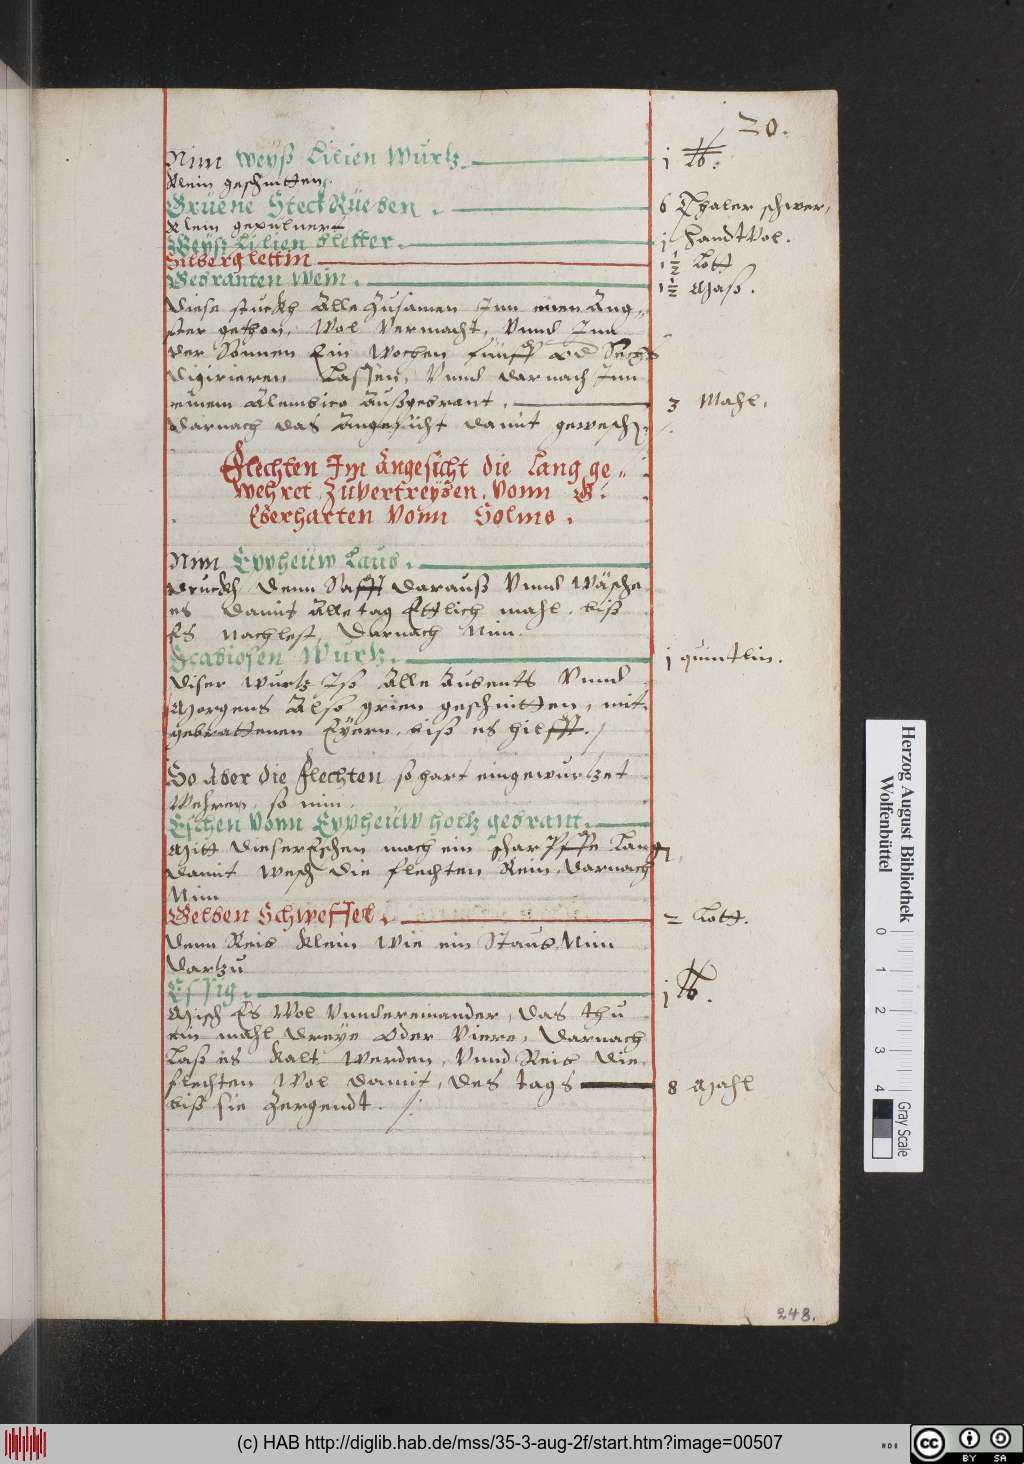 20.
Nim weyß Lilien Wurtz. j ℔.
klein geschnitten.
Gruene SteckRüeben. 6 Thaler schwer,
klein gepulvert
Weyß Lilien bletter. j HandtVol.
Silberglettin 1½ Lott
Gebranten Wein. 1½ Mass.
diese stuckh Alle Zusamen Inn einen Ang-
ster gethon, Wol Vermacht, Vnnd Inn
der Sonnen Ein Wochen fünff od Sechs
digirieren Lassen, Vnnd darnach Inn
einem Alembico Außgebrant. 3 Mahl.
darnach das Angesicht damit gewesch.
Flechten Im Angesicht die lang ge-
wehret Zuvertreyben, Vonn G:
Eberharten Vonn Solms.
Nim Eppheüw Laub.
druckh denn Safft darauß Vnnd Wäsche
es damit Alle tag Ettlich mahl, biß
Es Nachlest, Darnach Nim
Scabiosen Wurtz. j quintlin.
diser wurtz Iß Alle Aubents Vnnd
Morgens Also grien geschnitten, mit
gebrattenen Eyern, biß es hilfft.
So Aber die Flechten so hart eingewurtzet
Wehren, so nim
Eschen Vonn Eppheüw holtz gebrant.
Mitt dieser Eschen mach ein scharpffe Laug,
damit wesch die flechten Rein, darnach
Nim
Gelben Schweffel. 2 Lott.
denn Reib klein wie ein Staub, Nim
dartzu
Essig. j ℔.
Misch Es Wol Vndereinander, das thu
ein mahl dreye oder Viere, Darnach
Laß es kalt werden, Vnnd Reib die
flechten Wol damit, des tags 8 Mahl
biß sie Zergendt.
248.
Herzog August Bibliothek
Wolfenbüttel
0 1 2 3 4
Gray Scale
(c) HAB http://diglib.hab.de/mss/35-3-aug-2f/start.htm?image=00507
cc BY SA